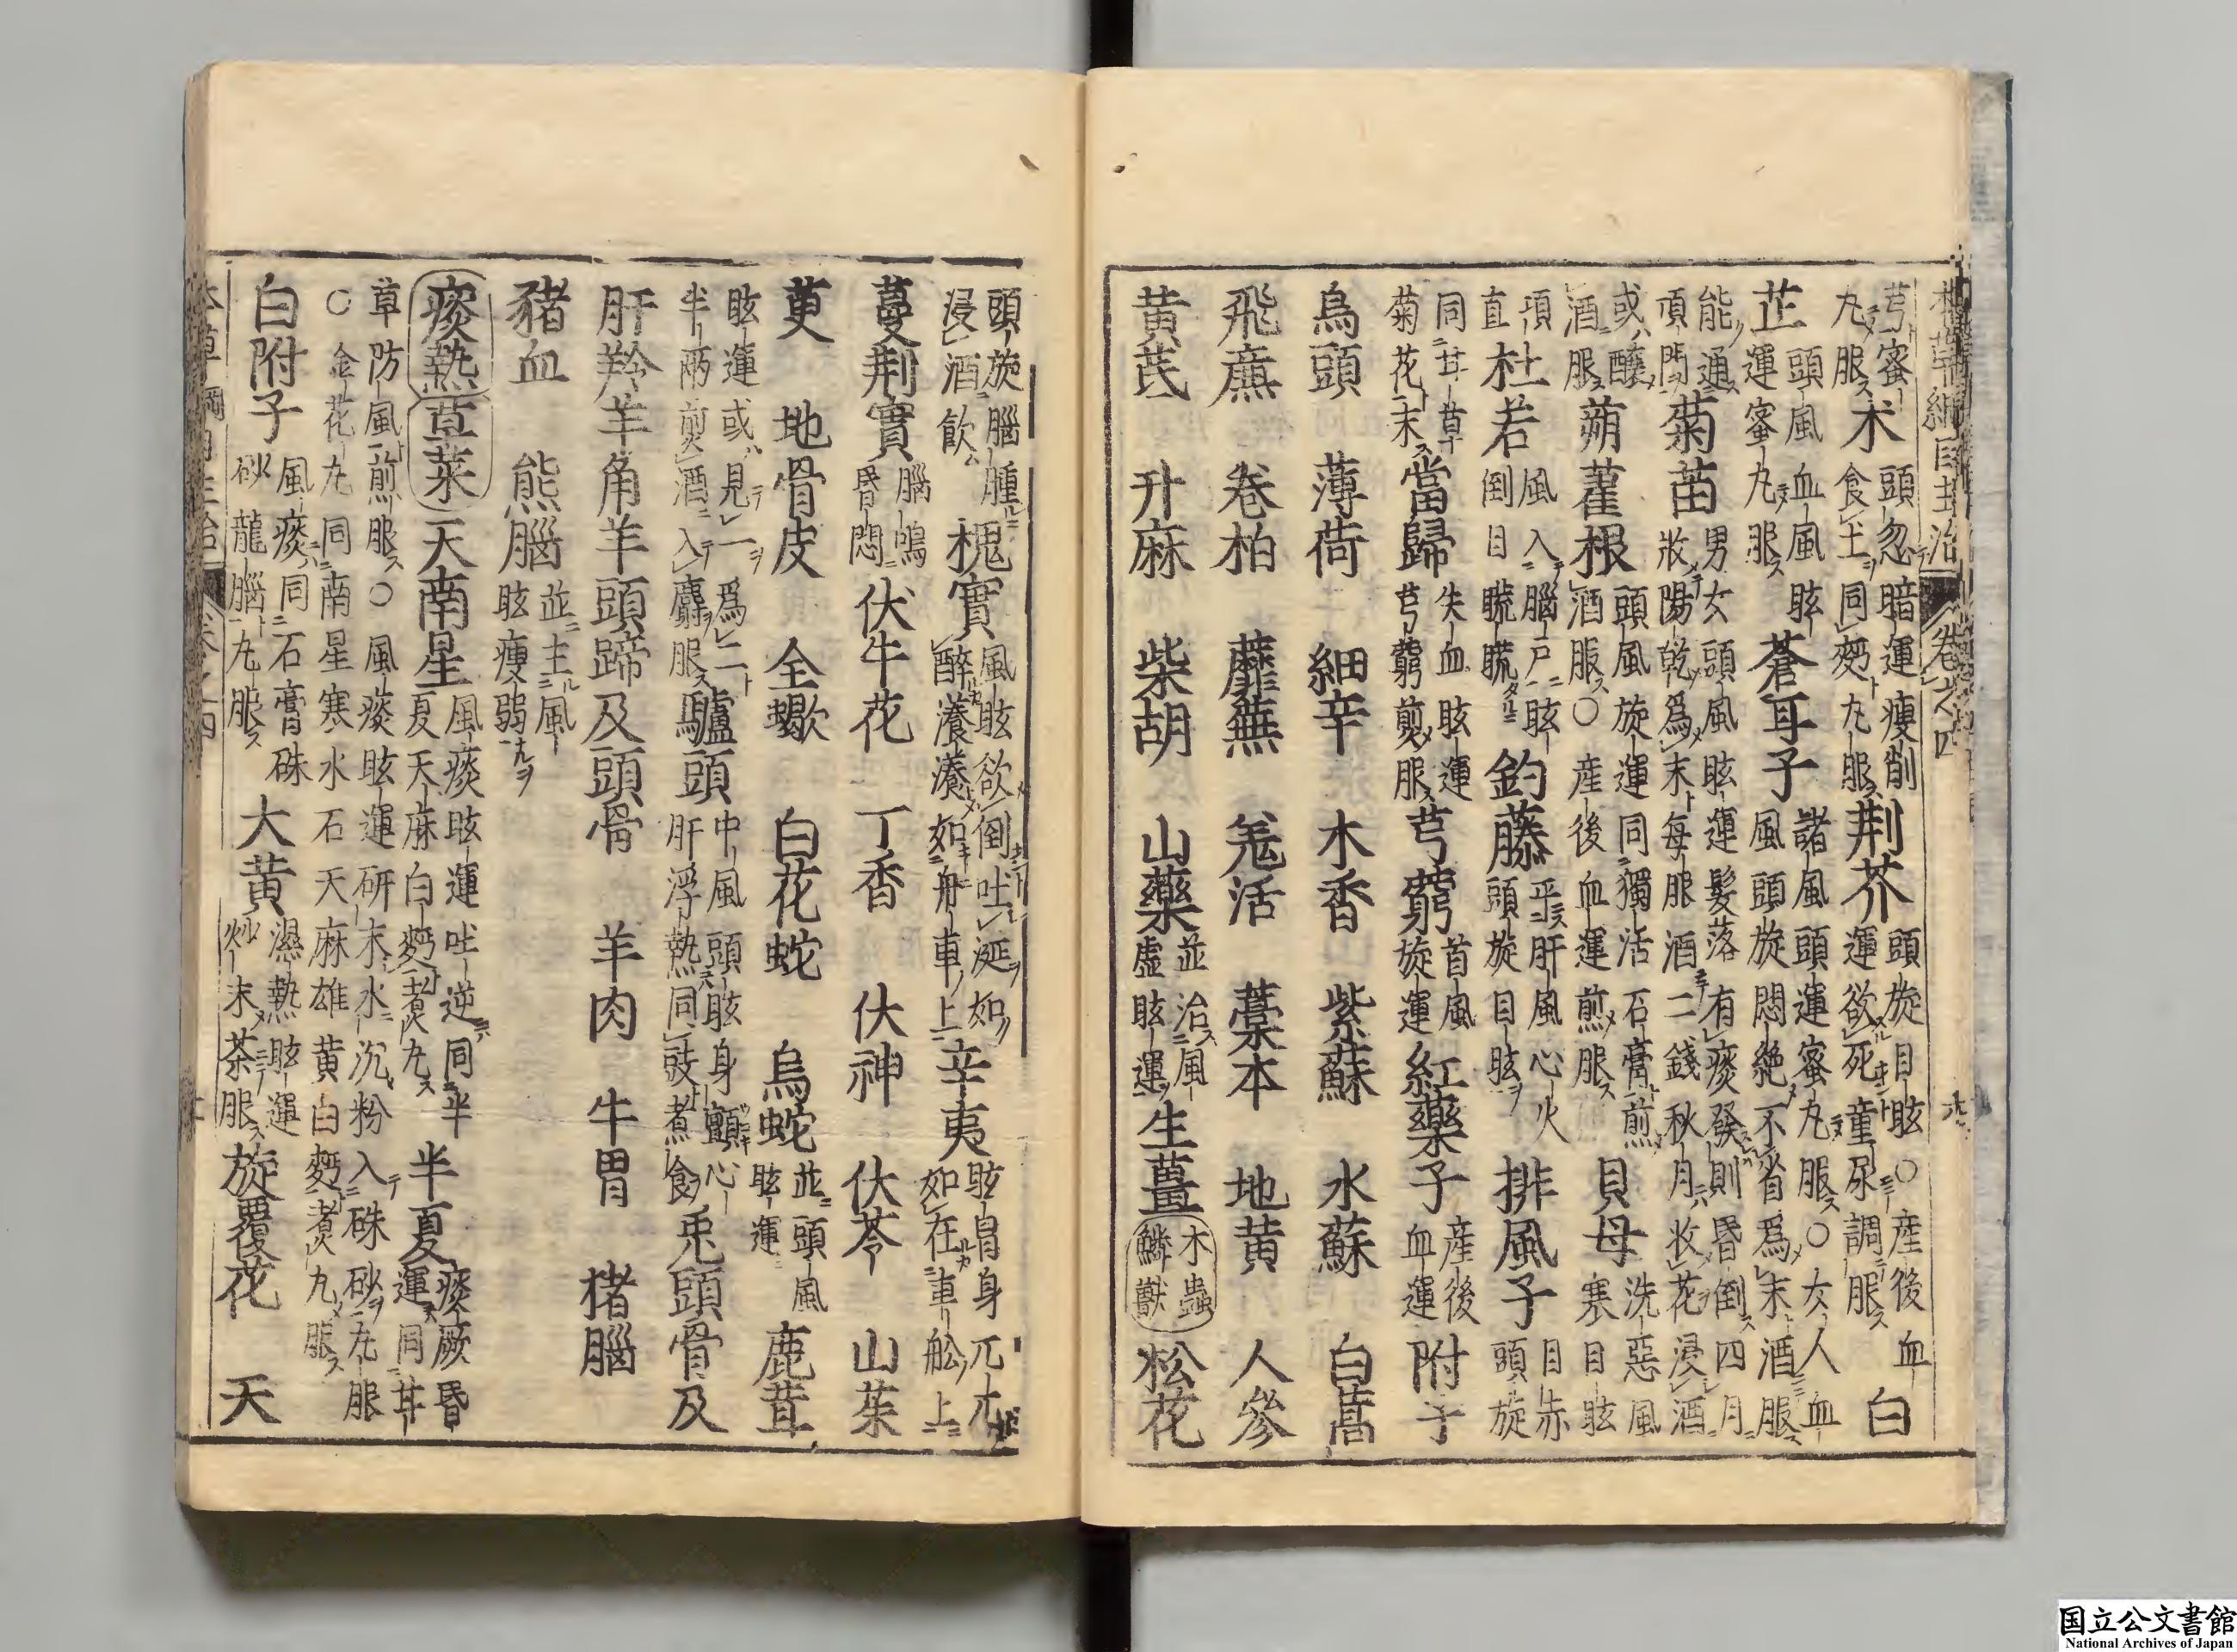 本草綱目主治 卷之四
芎蜜丸服 术 頭忽暗運瘦削食土同麯丸服 荆芥 頭旋目眩〇產後血運欲死童尿調服 白
芷 頭風血風眩運蜜丸服 蒼耳子 諸風頭運蜜丸服〇女人血風頭旋悶絶不省爲末酒服
能通頂門 菊苗 男女頭風眩運髮落有痰發則昏倒四月收陽乾爲末每服酒二錢秋月收花浸酒
或釀酒服 蒴藋根 頭風旋運同獨活石膏煎酒服〇產後血運煎服 貝母 洗惡風寒目眩
項直 杜若 風入腦戶眩倒目䀮䀮 釣藤 平肝風心火頭旋目眩 排風子 目赤頭旋
同甘草菊花末 當歸 失血眩運芎藭煎服 芎藭 首風旋運 紅藥子 產後血運 附子
烏頭 薄荷 細辛 木香 紫蘇 水蘇 白蒿
飛廉 卷柏 蘼蕪 羌活 藁本 地黃 人參
黃芪 升麻 柴胡 山藥 並治風虛眩運 生薑 木蟲鱗獸 松花
頭旋腦腫浸酒飲 槐實 風眩欲倒吐涎如醉瀁瀁如舟車上 辛夷 眩冒身兀兀如在車舩上
蔓荆實 腦鳴昏悶 伏牛花 丁香 伏神 伏苓 山茱
萸 地骨皮 全蠍 白花蛇 烏蛇 並頭風眩運 鹿茸
眩運或見一爲二半兩煎酒入麝服 驢頭 中風頭眩身顫心肝浮熱同豉煮食 兎頭骨及
肝羚羊角羊頭蹄及頭骨 羊肉 牛胃 猪腦
豬血 熊腦 並主風眩瘦弱
痰熱 草菜 天南星 風痰眩運吐逆同半夏天麻白麪煮丸 半夏 痰厥昏運同甘
草防風煎服〇風痰眩運研末水沉粉入硃砂丸服
〇金花丸同南星寒水石天麻雄黃白麪煮丸服
白附子 風痰同石膏硃砂龍腦丸服 大黃 濕熱眩運炒末茶服 旋覆花 天
本草綱目主治 卷之四
国立公文書館
National Archives of Japan